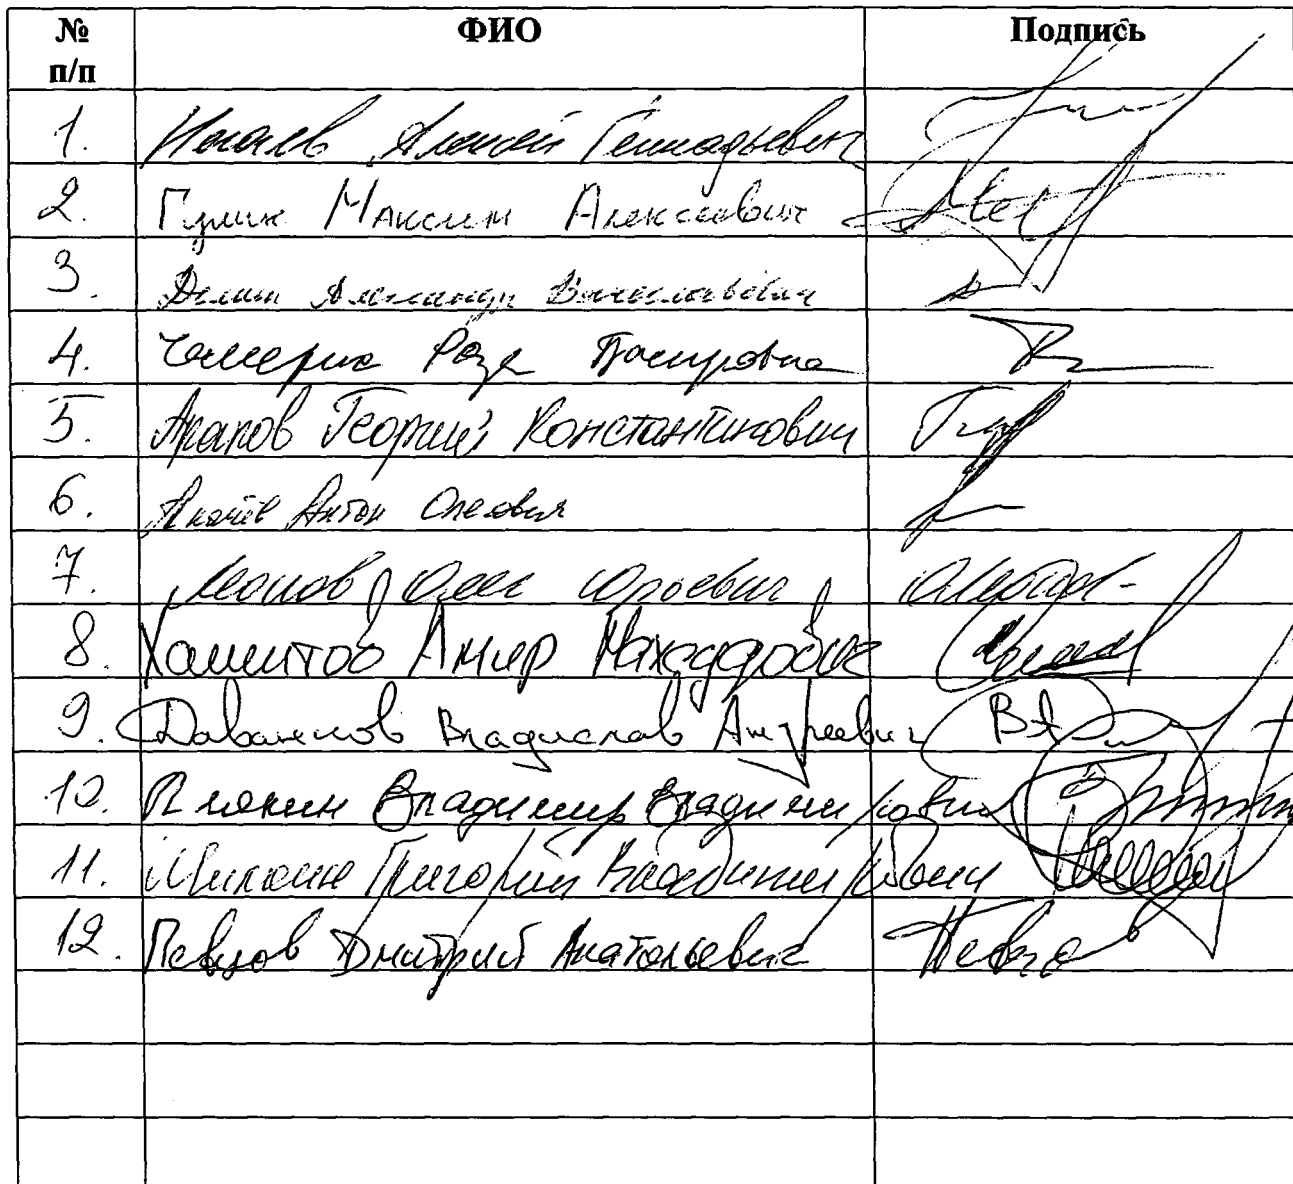 № п/п ФИО Подпись
1. Нечаев Алексей Геннадьевич
2. Гулин Максим Алексеевич
3. Демин Александр Вячеславович
4. Чемерис Роза Басировна
5. Арапов Георгий Константинович
6. Ткачёв Антон Олегович
7. Леонов Олег Юрьевич
8. Хамитов Амир Махсудович
9. Даванков Владислав Андреевич
10. Плякин Владимир Владимирович
11. Григорий Владимирович
12. Певцов Дмитрий Анатольевич Певцов